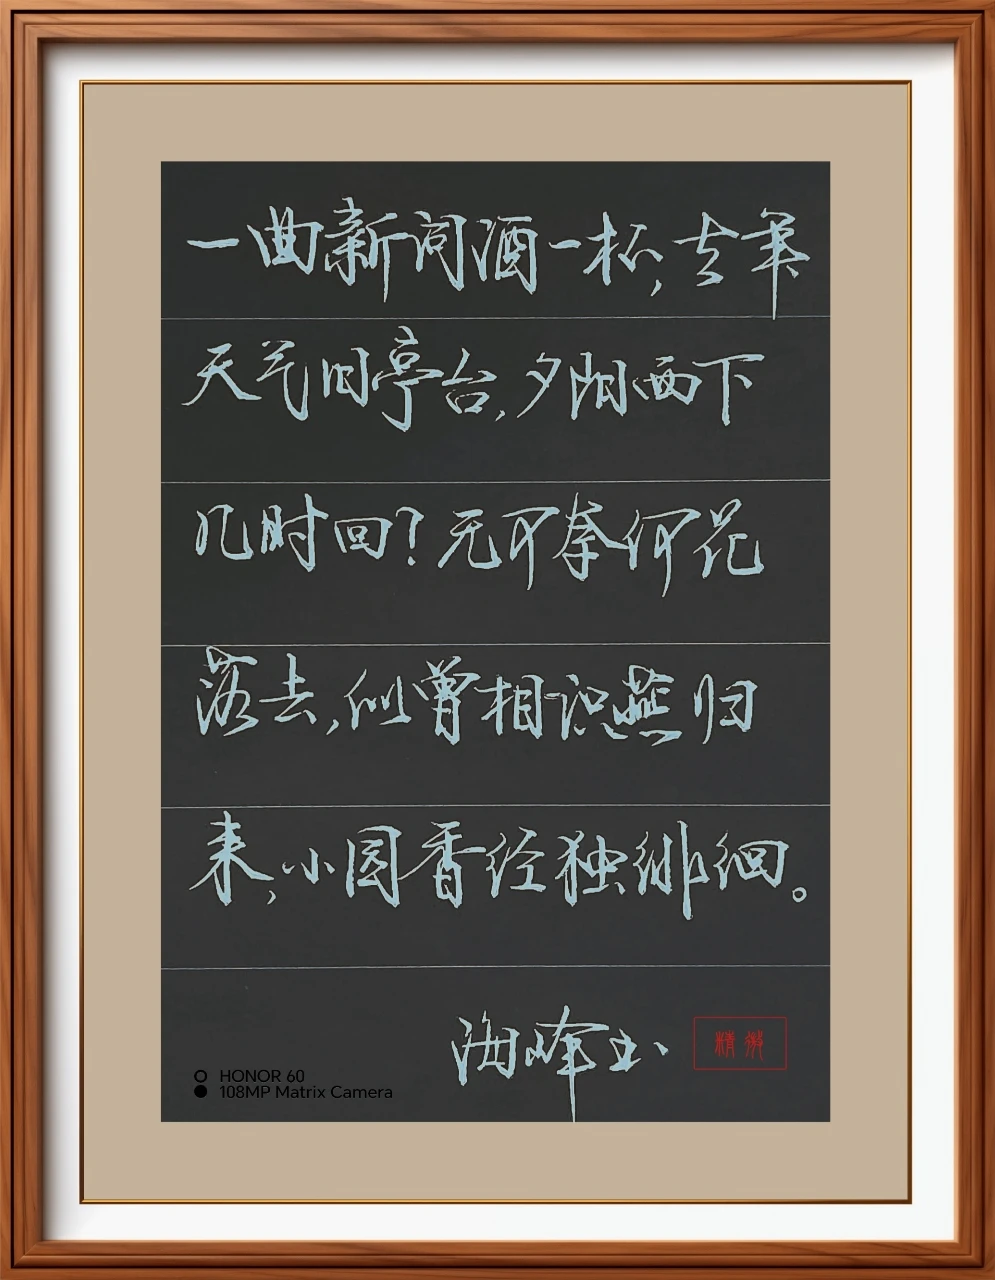 一曲新词酒一杯,去年
天气旧亭台,夕阳西下
几时回?无可奈何花
落去,似曾相识燕归
来,小园香径独徘徊。
海峰书
精微
HONOR 60
108MP Matrix Camera